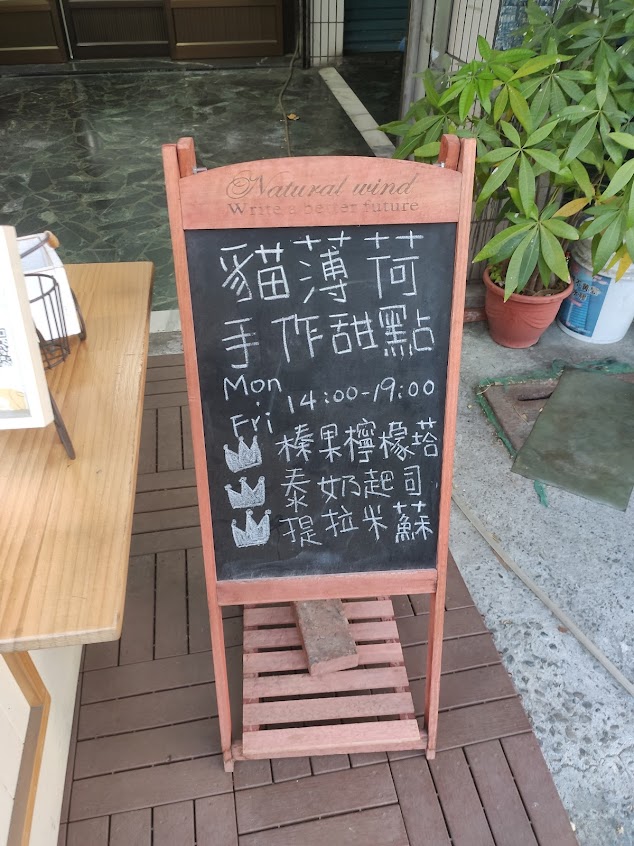 Natural wind
Write a better future
貓薄荷
手作甜點
Mon
14:00-19:00
Fri
榛果檸檬塔
泰奶起司
提拉米蘇